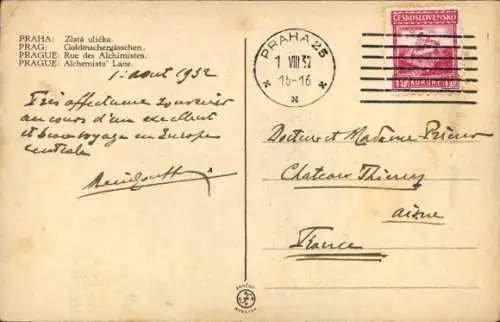 PRAHA: Zlatá ulička.
PRAG: Goldmachergässchen.
PRAGUE: Rue des Alchimistes.
PRAGUE: Alchemists' Lane.
1 août 1932
Très affectueux souvenir
au cours d'un excellent
et beau voyage en Europe
centrale
PRAHA 25
1 VIII 32
15-16
ČESKOSLOVENSKO
Docteur et Madame
Chateau Thierry
Aisne
France